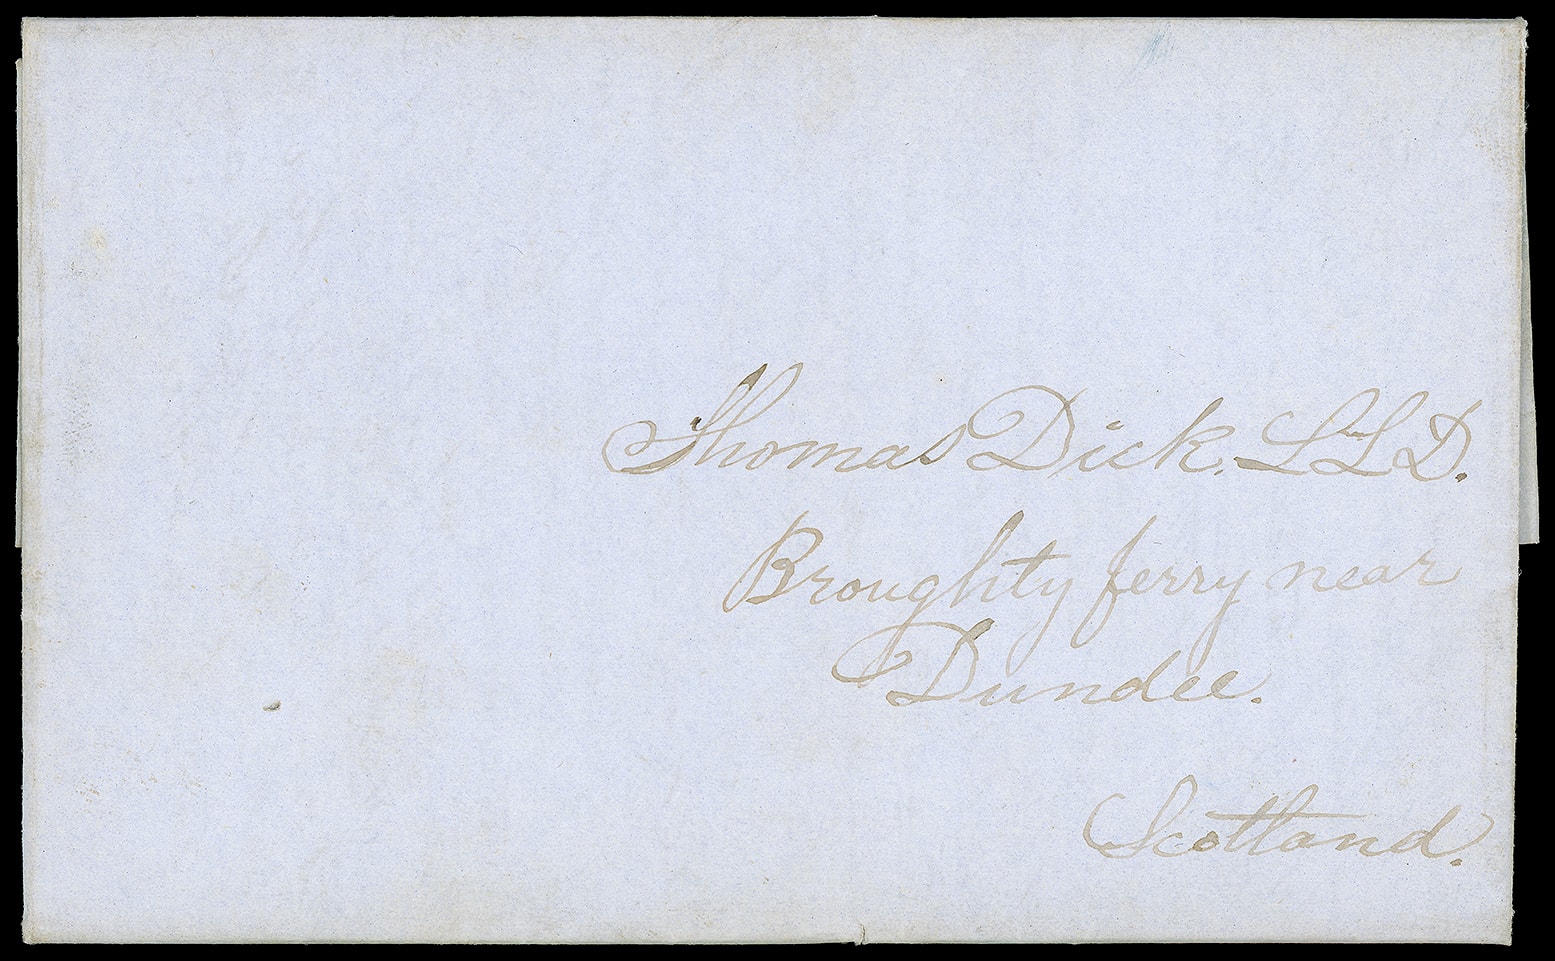 Thomas Dick. LLD.
Broughty ferry near
Dundee.
Scotland.